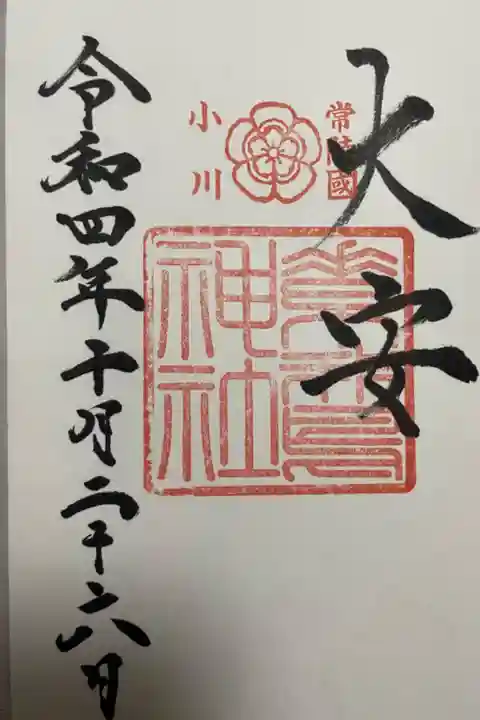 大安
常陸國
小川
神社
令和四年十月二十六日